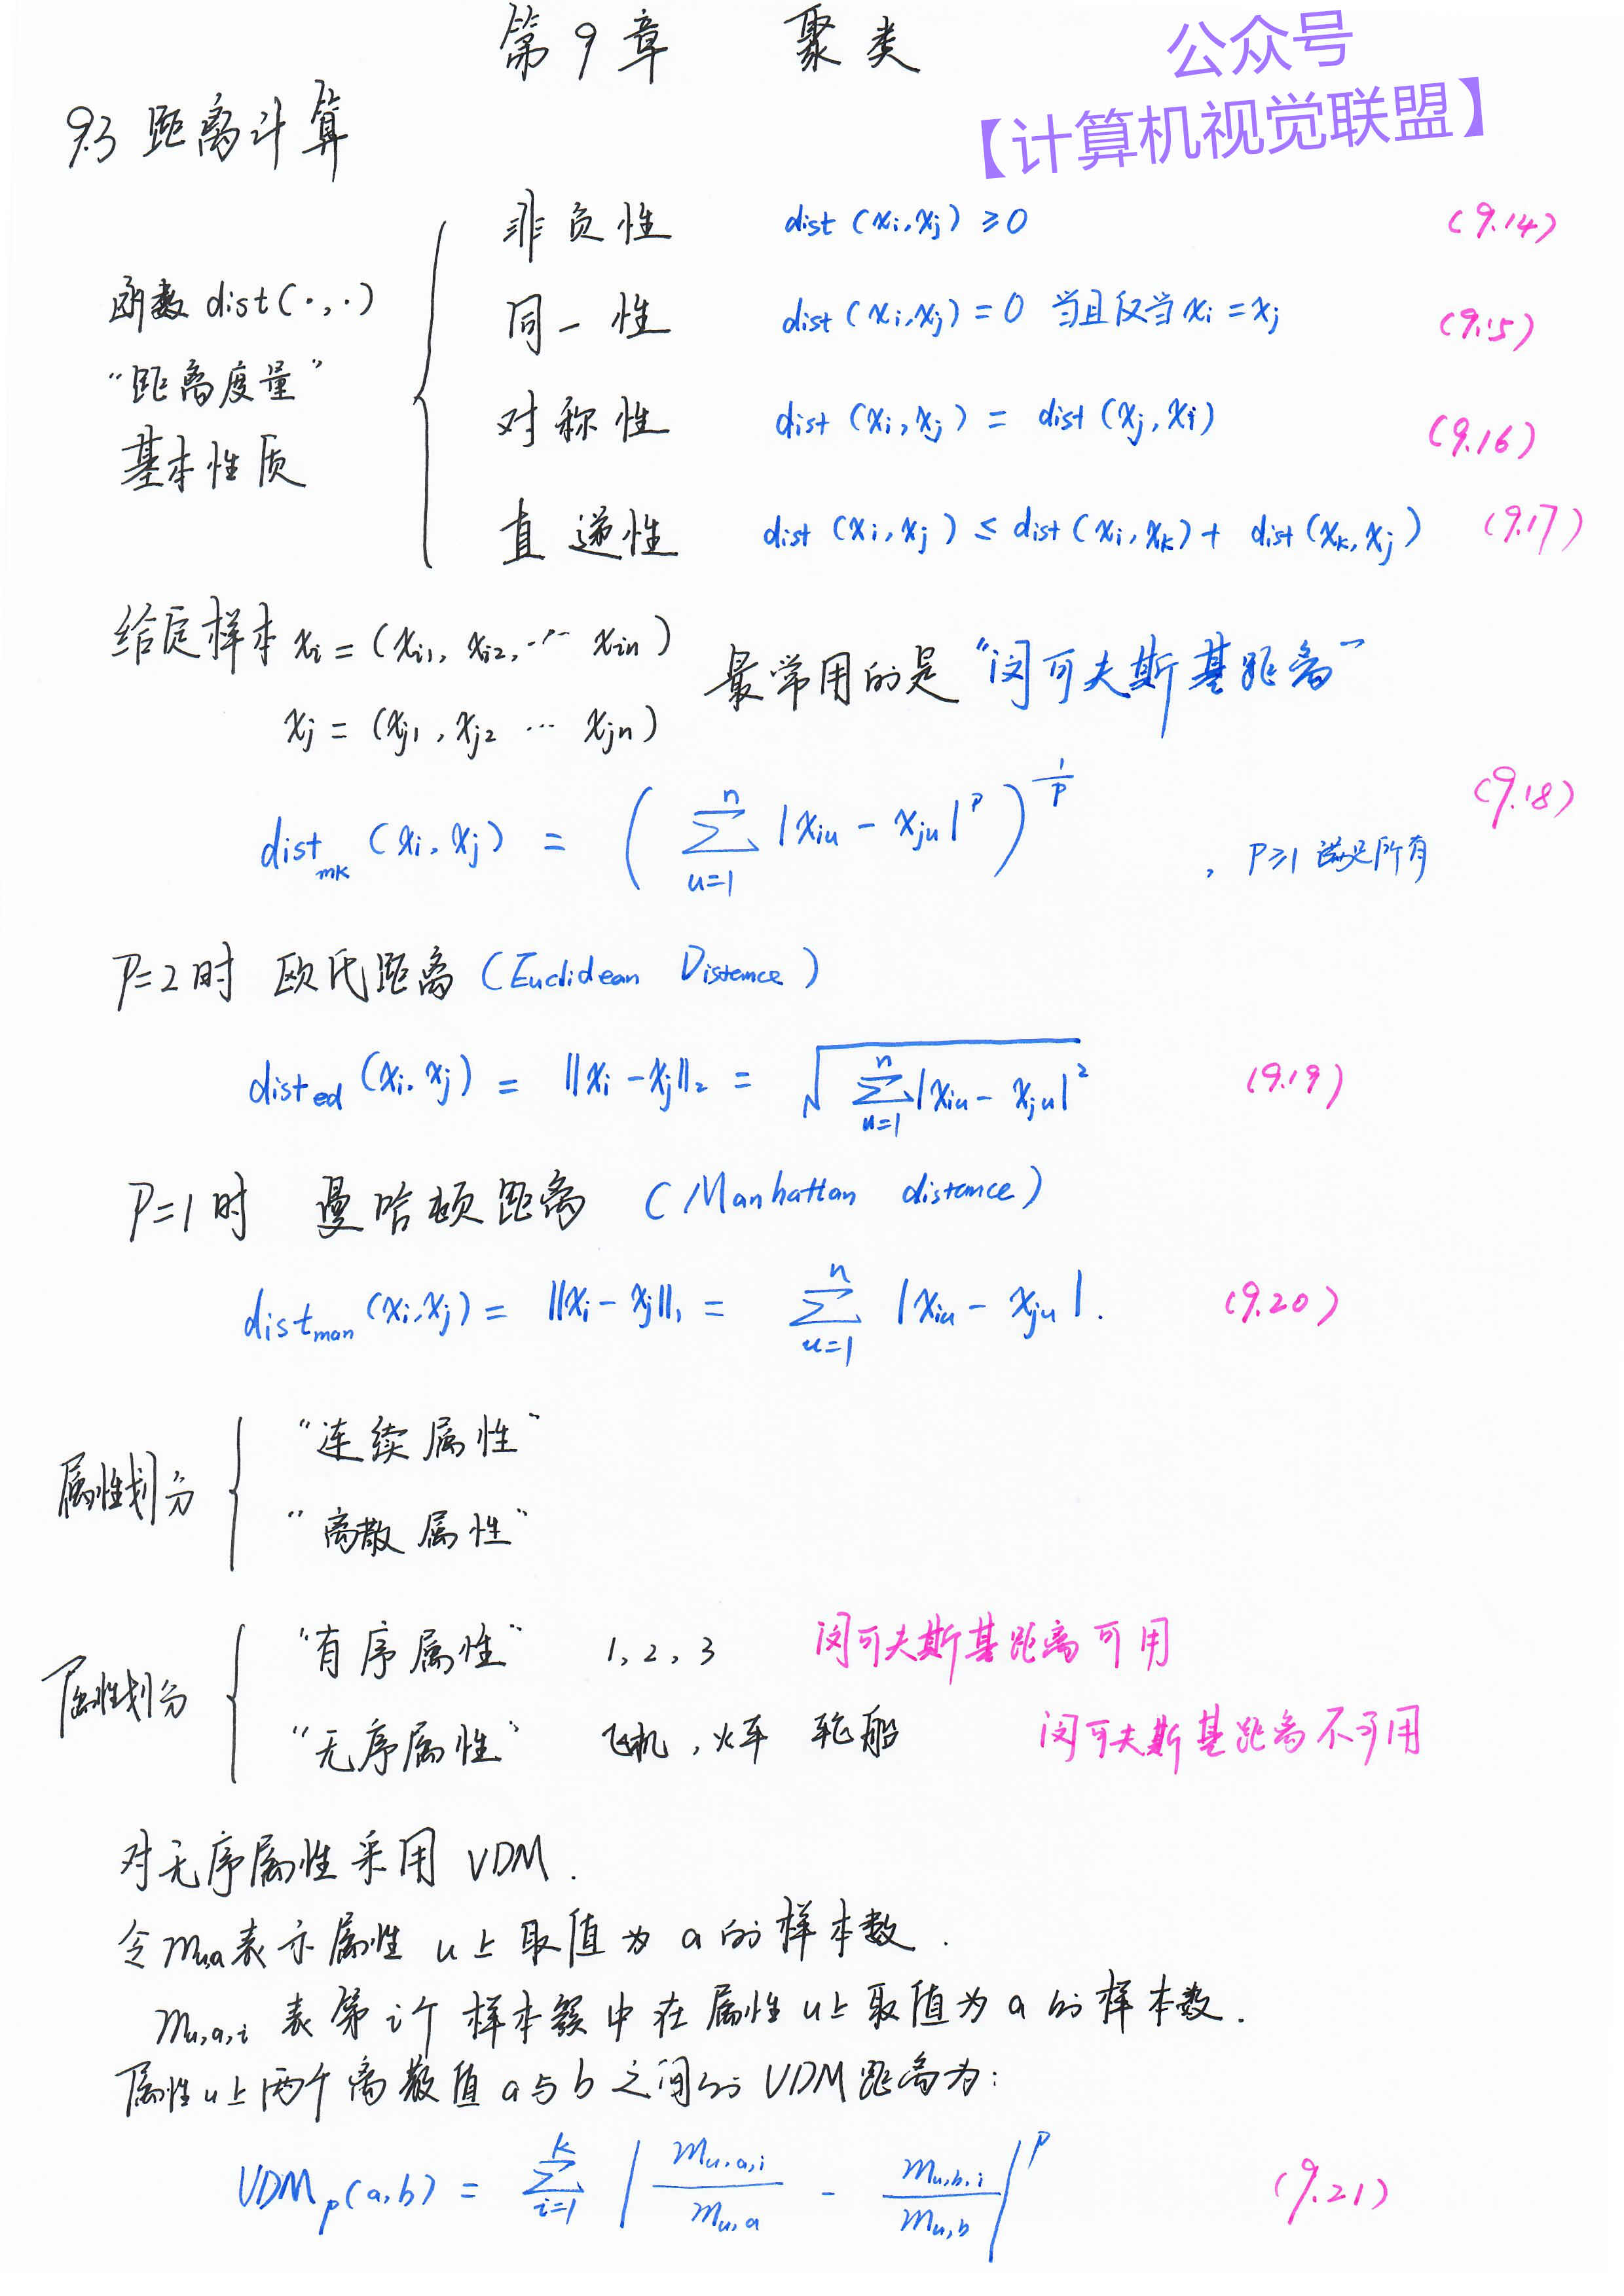 第9章 聚类
公众号
【计算机视觉联盟】
9.3 距离计算
函数 dist(·,·)
“距离度量”
基本性质
非负性 dist (xi,xj) ≥0 (9.14)
同一性 dist (xi,xj) = 0 当且仅当 xi = xj (9.15)
对称性 dist (xi,xj) = dist (xj,xi) (9.16)
直递性 dist (xi,xj) ≤ dist (xi,xk) + dist (xk,xj) (9.17)
给定样本 xi = (xi1, xi2, ··· xin) 最常用的是 “闵可夫斯基距离”
xj = (xj1, xj2 ··· xjn)
dist_mk (xi, xj) = ( ∑_{u=1}^{n} |xiu - xju|^p )^{1/p} , P≥1 满足所有 (9.18)
P=2时 欧氏距离 (Euclidean Distance)
dist_ed (xi, xj) = ||xi - xj||₂ = √(∑_{u=1}^{n} |xiu - xju|²) (9.19)
P=1时 曼哈顿距离 (Manhattan distance)
dist_man (xi,xj) = ||xi - xj||₁ = ∑_{u=1}^{n} |xiu - xju|. (9.20)
属性划分
“连续属性”
“离散属性”
属性划分
“有序属性” 1, 2, 3 闵可夫斯基距离可用
“无序属性” 飞机, 火车 轮船 闵可夫斯基距离不可用
对无序属性采用 VDM.
令 m_{u,a} 表示属性 u上取值为 a 的样本数.
m_{u,a,i} 表第 i个样本簇中在属性 u上取值为 a 的样本数.
属性u上两个离散值 a与b 之间的 VDM 距离为:
VDM_p(a,b) = ∑_{i=1}^{k} | m_{u,a,i}/m_{u,a} - m_{u,b,i}/m_{u,b} |^p (9.21)